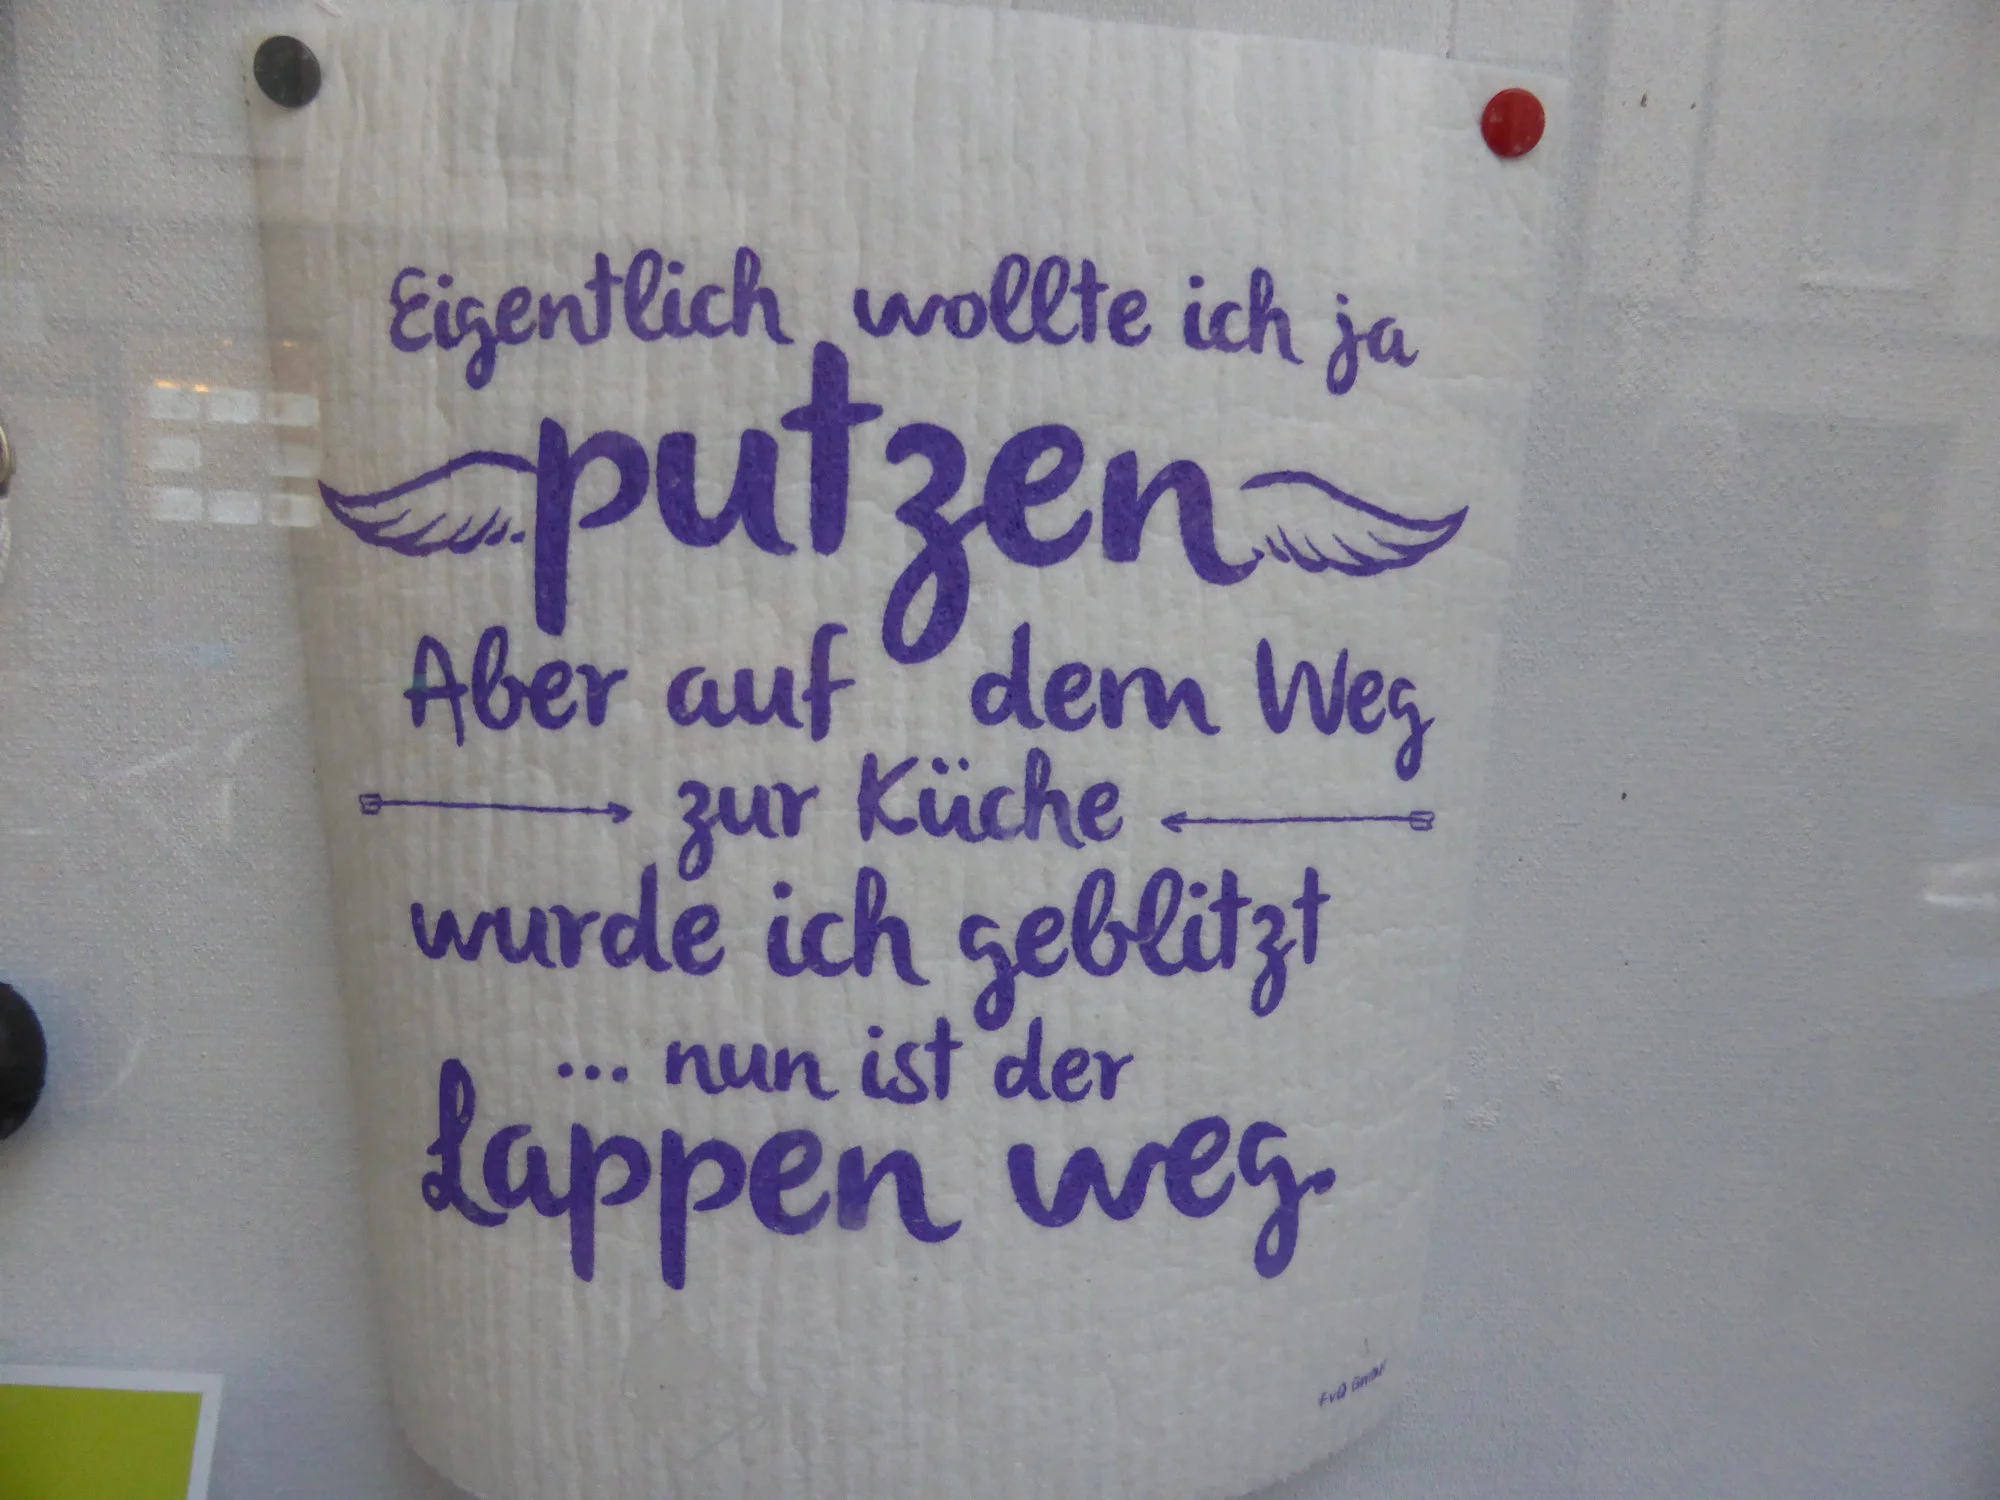 Eigentlich wollte ich ja
putzen
Aber auf dem Weg
zur Küche
wurde ich geblitzt
... nun ist der
Lappen weg.